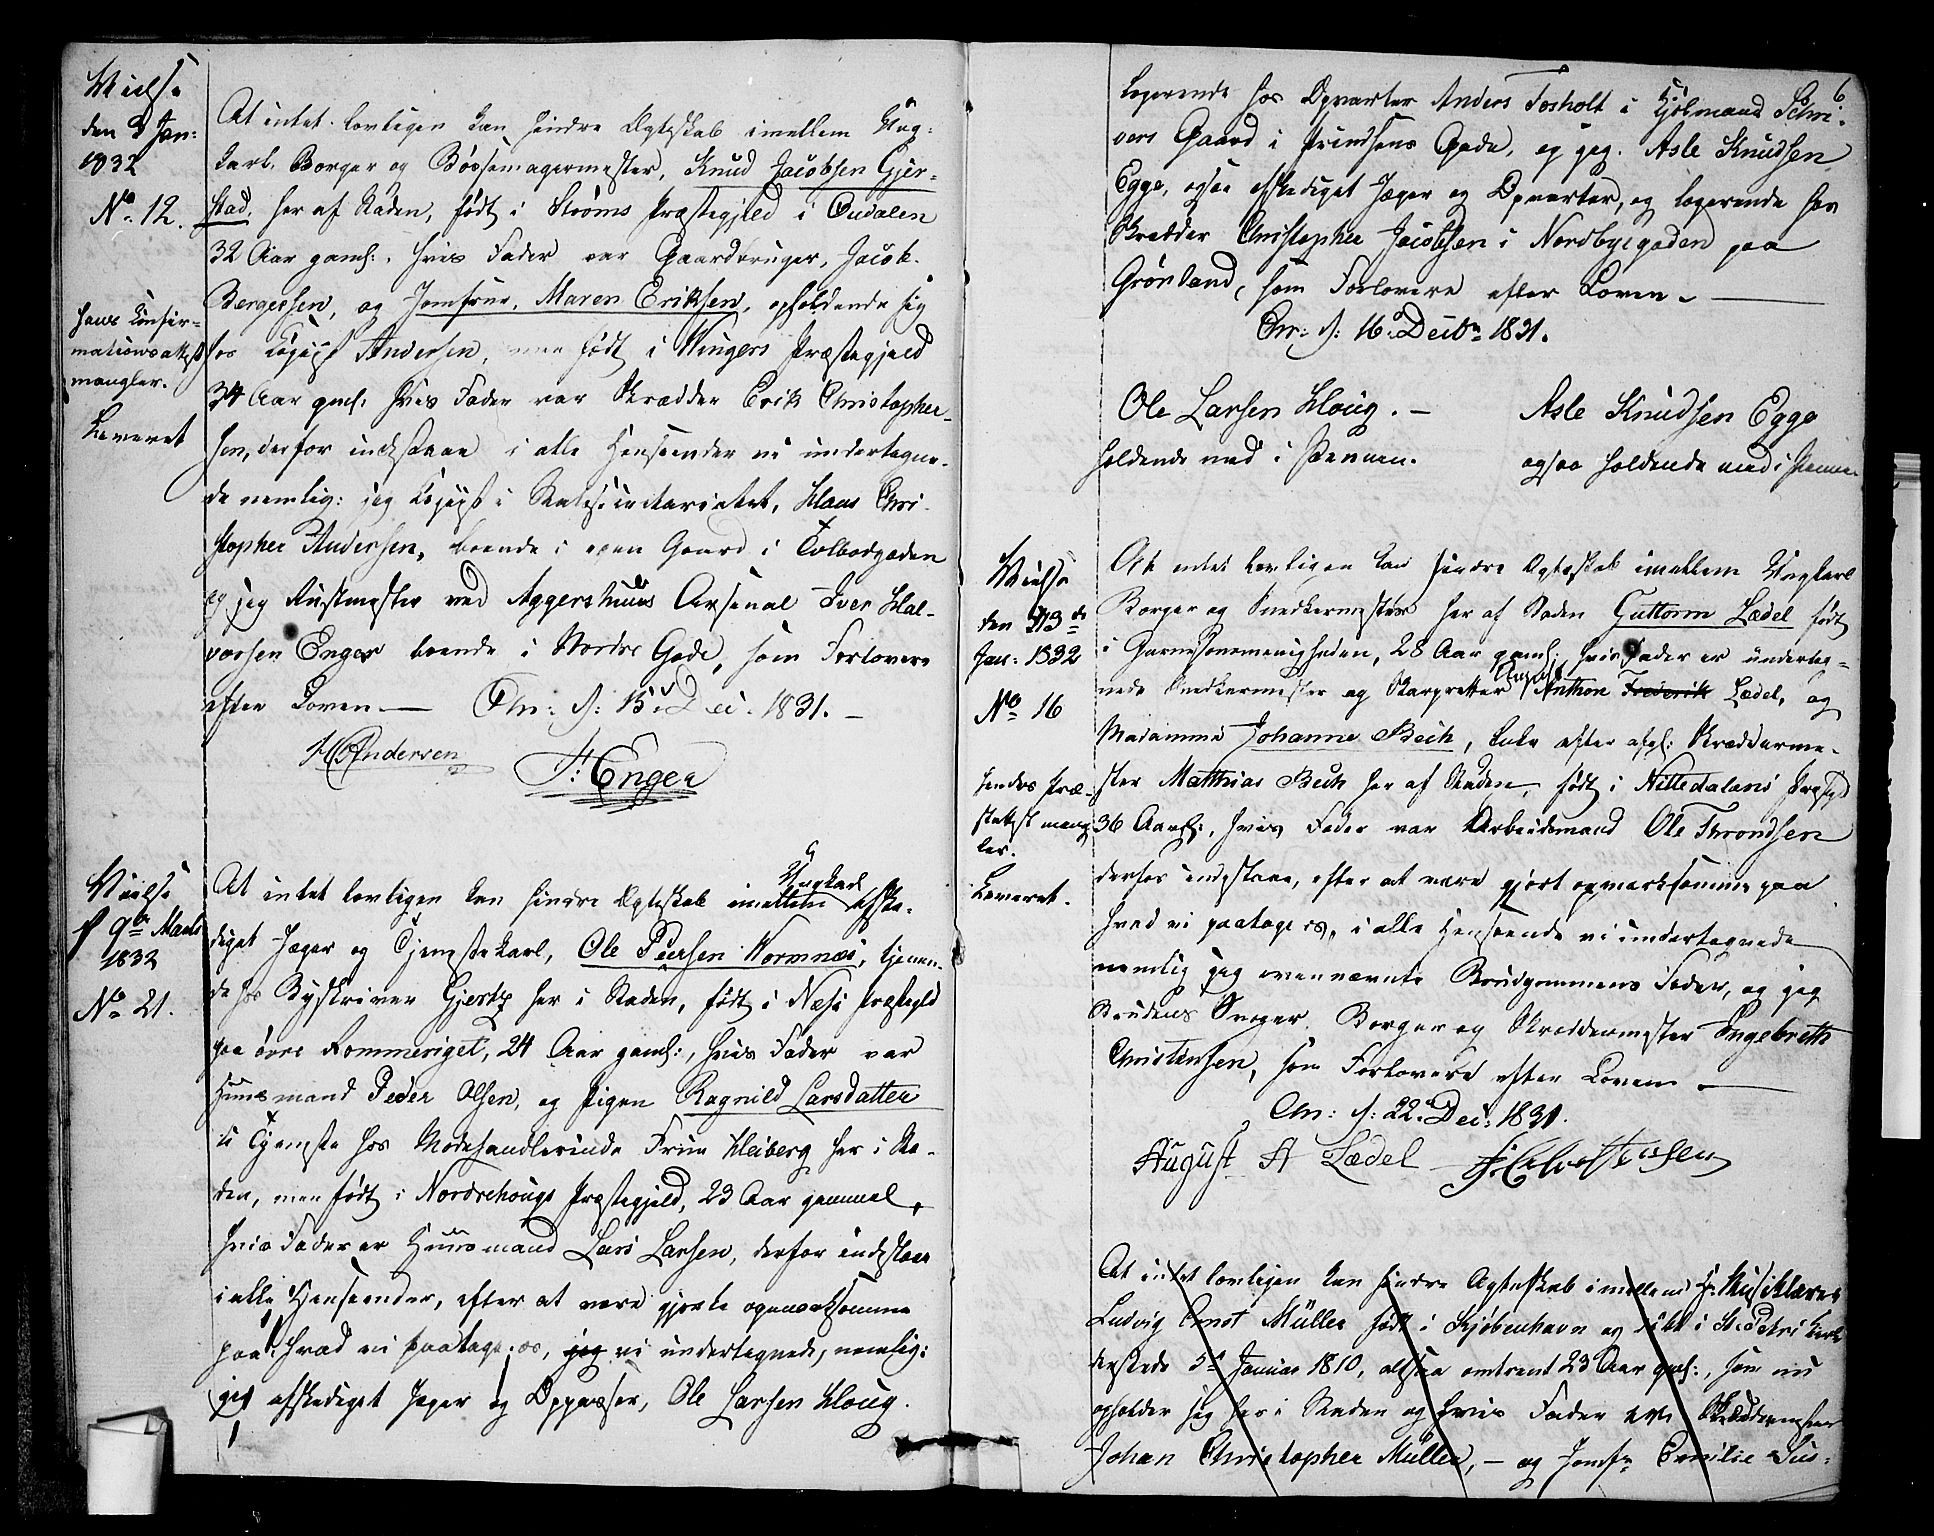 Vielse
den 3 Jan:
1832
No. 12.
hans Confir=
mationsattest
mangler.
Leveret
At intet lovligen kan hindre Ægteskab imellem Ung=
karl, Borger og Bøssemagermester, Knud Jacobsen Gjer=
stad, her af Staden, født i Strøms Præstegjeld i Oudalen
32 Aar gaml:, hvis Fader var Gaardbruger, Jacob
Bergersen, og Jomfrue, Maren Eriksen, opholdende sig
hos Copiist Andersen, men født i Wingers Præstegjeld
34 Aar gml: hvis Fader var Skrædder Erik Christopher=
sen, derfor indestaae i alle Henseender vi undertegne=
de nemlig: jeg Copiist i Statssecretariatet, Klaus Chri=
stopher Andersen, boende i egen Gaard i Toldbodgaden
og jeg Rustmester ved Aggershuus Arsenal Iver Hal=
vorsen Enger boende i Nordre Gade, som Forlovere
efter Loven. — Chr: d: 15 Dec. 1831. —
Andersen
I: Enger
Vielse
9de Marts
1832
No. 21.
At intet lovligen kan hindre Ægteskab imellem Ungkarl afske=
diget Jæger og Tjenestekarl, Ole Peersen Wormnæs, tjenen=
de hos Byskriver Gjertz her i Staden, født i Næss Præstegjld
paa øvre Rommeriget, 24 Aar gaml:, hvis Fader var
Huusmand Peder Olsen, og Pigen Ragnild Larsdatter
i Tjeneste hos Modehandlerinde Frue Kleiberg her i Sta=
den, men født i Nordrehougs Præstegjeld, 23 Aar gammel,
hvis Fader er Huusmand Lars Larsen, derfor indestaae
i alle Henseender, efter at være gjorte opmærksomme
paa hvad vi paatage os, jeg vi undertegnede, nemlig:
jeg afskediget Jæger og Oppasser, Ole Larsen Kloug.
6.
logerende hos Opvarter Anders Fosholt i Kjøbmand Schri=
vers Gaard i Prindsens Gade, og jeg. Asle Knudsen
Egge, ogsaa afskediget Jæger og Opvarter, og logerende hos
Skrædder Christopher Jacobsen i Nordbygaden paa
Grønland, som Forlovere efter Loven. —
Chr: d: 16. Decbr 1831.
Ole Larsen Kloug. — Asle Knudsen Egge
holdende ved i Pennen. ogsaa holdende ved i Pennen
Vielse
den 13de
Jan: 1832
No 16
hendes Præ=
steattest mang
ler.
Leveret.
At intet lovligen kan hindre Ægteskab imellem Ungkarl
Borger og Snedkermester her af Staden Guttorm Lædel født
i Garnisonsmenigheden, 28 Aar gaml: hvis Fader er underteg=
nede Snedkermester og Skarpretter August Anthon Frederik Lædel, og
Madamme Johanne Bech, Enke efter afg: Skrædderme=
ster Matthias Bech her af Staden, født i Nittedalens Præstgjld
36 Aar gl:, hvis Fader var Arbeidsmand Ole Throndsen
derfor indestaae, efter at være gjort opmærksomme paa
hvad vi paatage os, i alle Henseende vi undertegnede
nemlig jeg ovennævnte Brudgommens Fader, og jeg
Brudens Svoger, Borger og Skræddermester Engebrett
Christensen, som Forlovere efter Loven —
Chr: d: 22. Dec: 1831.
August A Lædel E. Christensen
At intet lovligen kan hindre Ægteskab imellem Hr. Musiklærer
Ludvig Ernst Müller født i Kjøbenhavn og døbt i St. Petri Kirke
dersteds 5te Januar 1810, altsaa omtrent 23 Aar gml:, som nu
opholder sig her i Staden og hvis Fader var Skræddermester
Johan Christopher Müller, — og Jomfr Emilie Sus=